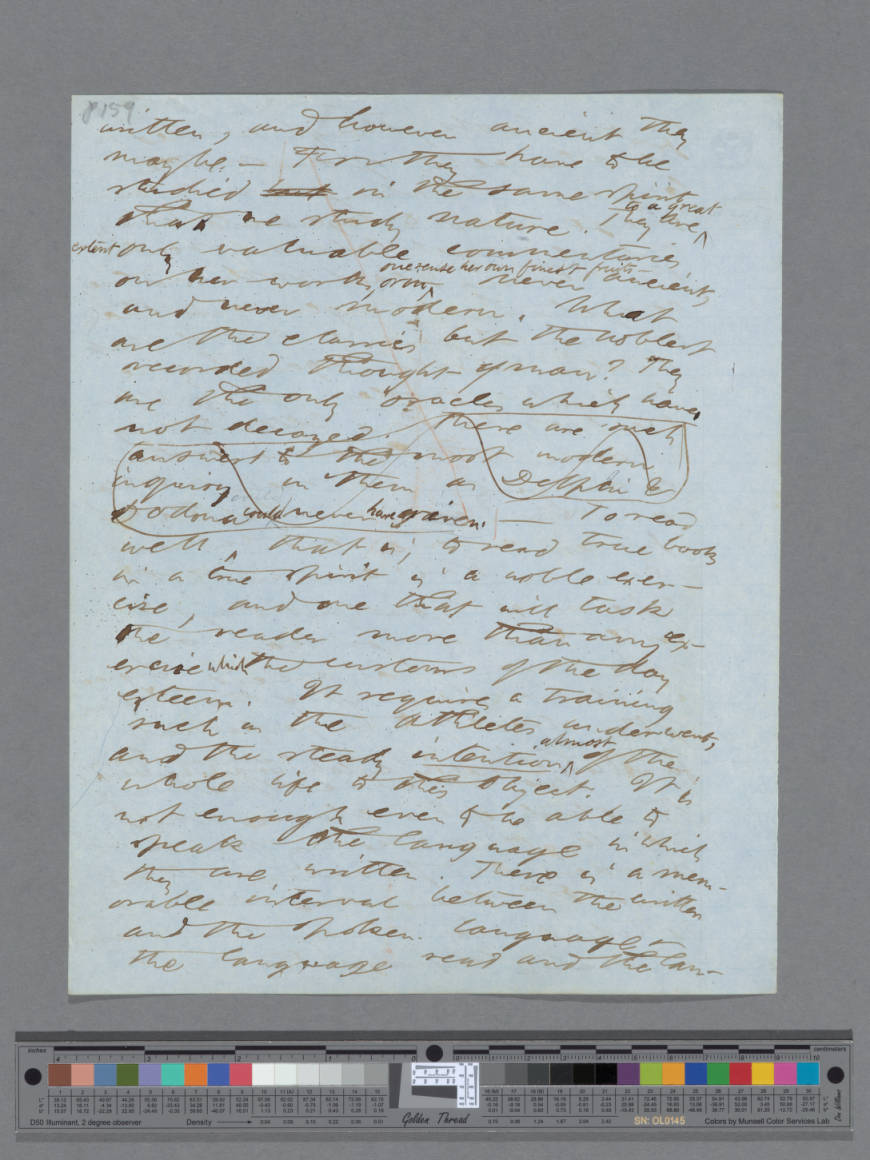 p 159
written, and however ancient they
may be. — For they have to be
studied but in the same spirit
to a great
that we study nature. They are
extent only valuable commentaries
one sense her own finest fruits—
on her works, never ancient,
and never modern. What
are the classics but the noblest
recorded thought of man? They
are the only oracles which have
not decayed. There are such
answers to the most modern
inquiry in them as Delphi &
Dodona could never have given. — To read
well, that is, to read true books
in a true spirit is a noble exer-
cise, and one that will task
the reader more than any ex-
ercise which the customs of the day
esteem. It requires a training
such as the athletes underwent,
almost
and the steady intention of the
whole life to this object. It is
not enough even to be able to
speak the language in which
they are written. There is a mem-
orable interval between the written
and the spoken language
the language read and the lan-
inches
centimeters
D50 Illuminant, 2 degree observer
Density
Golden Thread
SN: OL0145
Colors by Munsell Color Services Lab